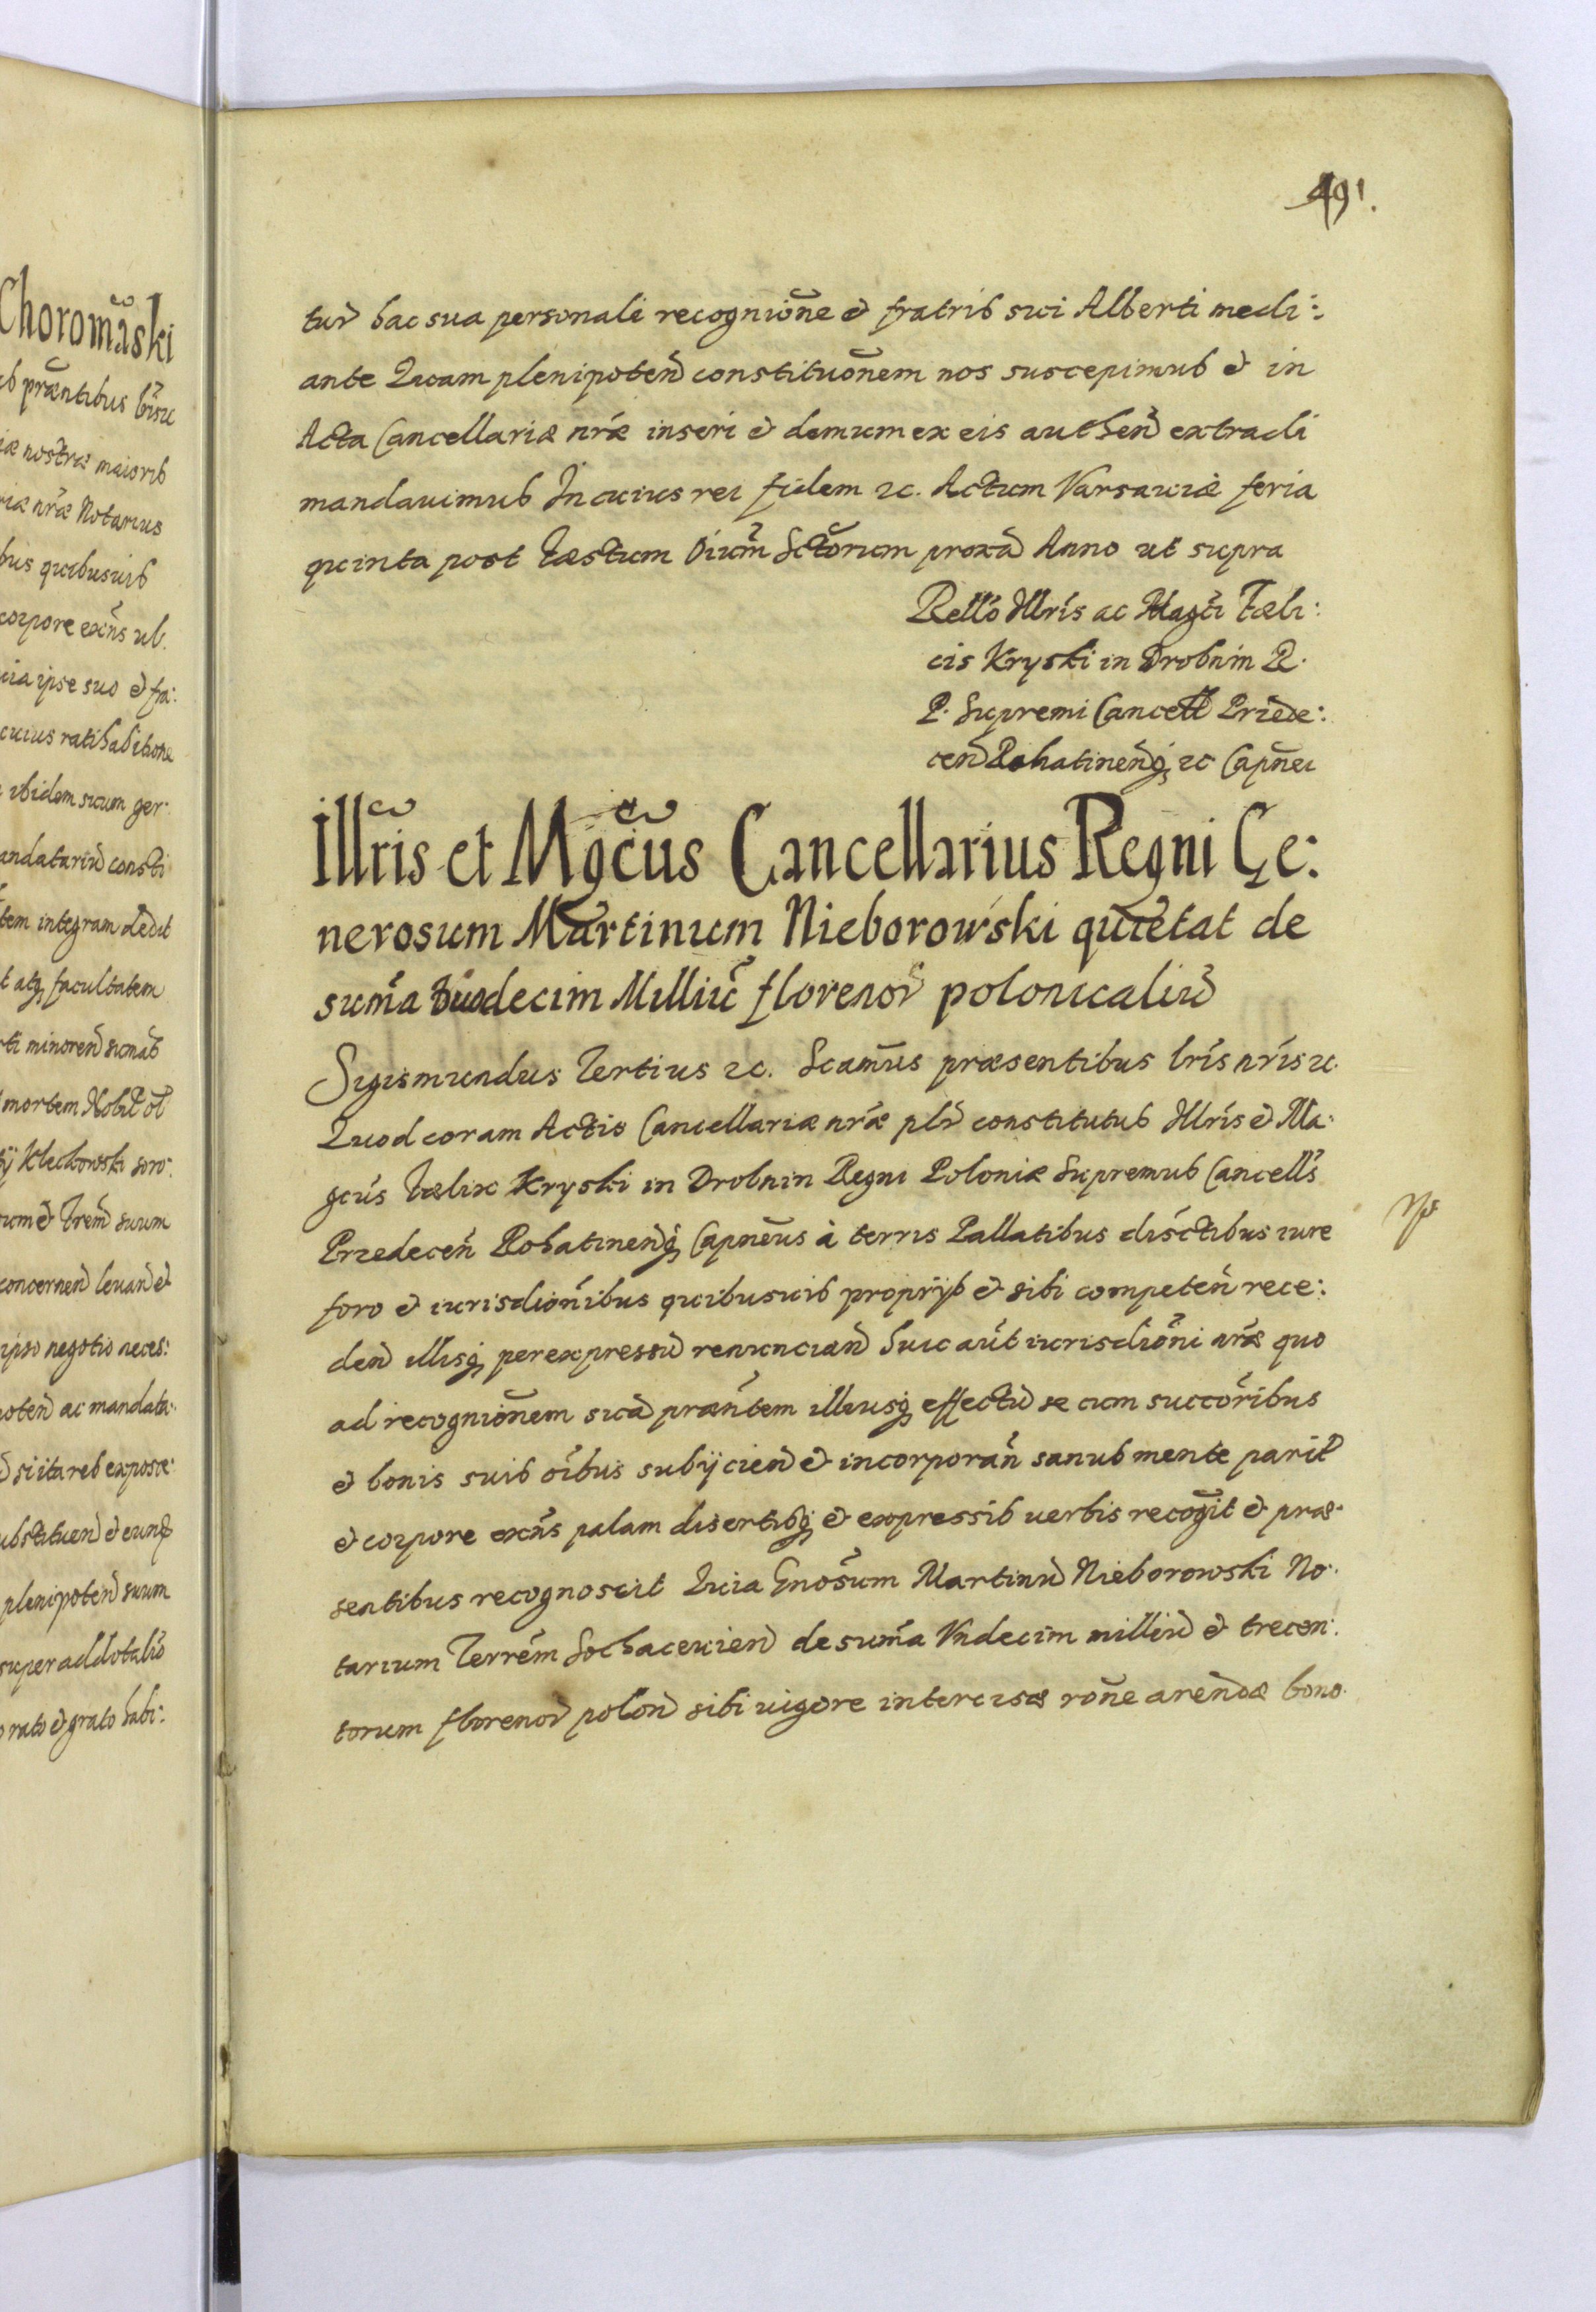 Choromãski
præntibus lris
iæ nostræ maiorib
riæ nræ Notarius
bus quibusuis
corpore exñs
uia ipse suo et fra:
cuius ratihabitione
ibidem suum ger:
andatariũ consti
tem integram dedit
t atq facultatem
mortem Nobil ol
Klechowski
concernen leuan et
ipso negotio neces:
poten ac mandata:
si ita res expos
ubstituen et
plenipoten suum
super addotalio
rato et grato habi:
491.
tur hac sua personali recognione et fratris sui Alberti medi:
ante Quam plenipoten constituõnem nos suscepimus et in
Acta Cancellariæ nræ inseri et demum ex eis authen extradi
mandauimus In cuius rei fidem ꝛc. Actum Varsauiæ feria
quinta post Fæstum Oium Sctorum proxa Anno ut supra
Rello Illris ac Magci Fæli:
cis Kryski in Drobnin R.
P. Supremi Cancell Priede:
cen Rohatinenq ꝛc Capnei
Illris et Mgcus Cancellarius Regni Ge:
nerosum Martinum Nieborowski quietat de
suma duodecim Milliu florenor polonicaliu
Sigismundus Tertius ꝛc. Scamus præsentibus lris nris ꝛc.
Quod coram Actis Cancellariæ nræ plr constitutus Illris et Ma:
gcus Fælix Kryski in Drobnin Regni Poloniæ Supremus Cancells
Priedecen Rohatinenq Capneus à terris Pallatibus disctibus iure
foro et iurisdionibus quibusuis proprijs et sibi competen rece:
den illisq per expressu renuncian huic aut iurisdioni nræ quo
ad recognionem sua præntem illiusq effectu se cum succoribus
et bonis suis oibus subijcien et incorporan sanus mente parit
et corpore exñs palam disertisq et expressis uerbis recogit et præ:
sentibus recognoscit Quia Gnosum Martinu Nieborowski No:
tarium Terrem Sochaceuien de suma Vndecim milliu et trecen:
torum florenor polon sibi uigore intercisæ rone arendæ bono: